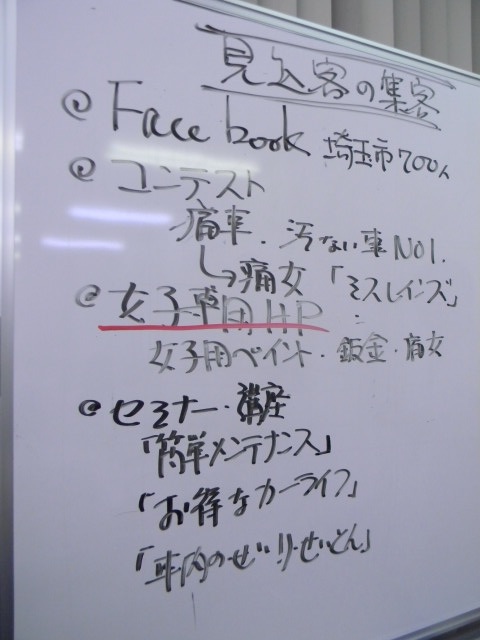 見込客の集客
@ Face book 埼玉市700人
@ コンテスト
痛車. 汚ない車NO1.
→痛女 「ミスレインズ」
@ 女子専用HP
女子用ペイント・鈑金・痛女
@ セミナー・講座
「簡単メンテナンス」
「お得なカーライフ」
「車内のせいりせいとん」